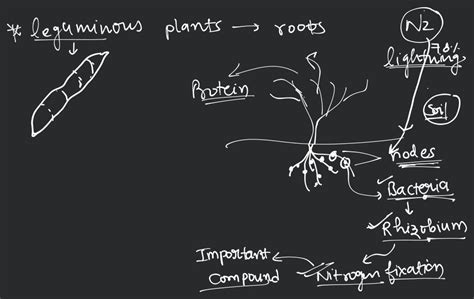 * leguminous plants → roots
N2
78%
lightning
Protein
Soil
nodes
Bacteria
Rhizobium
Nitrogen fixation
Important
Compound